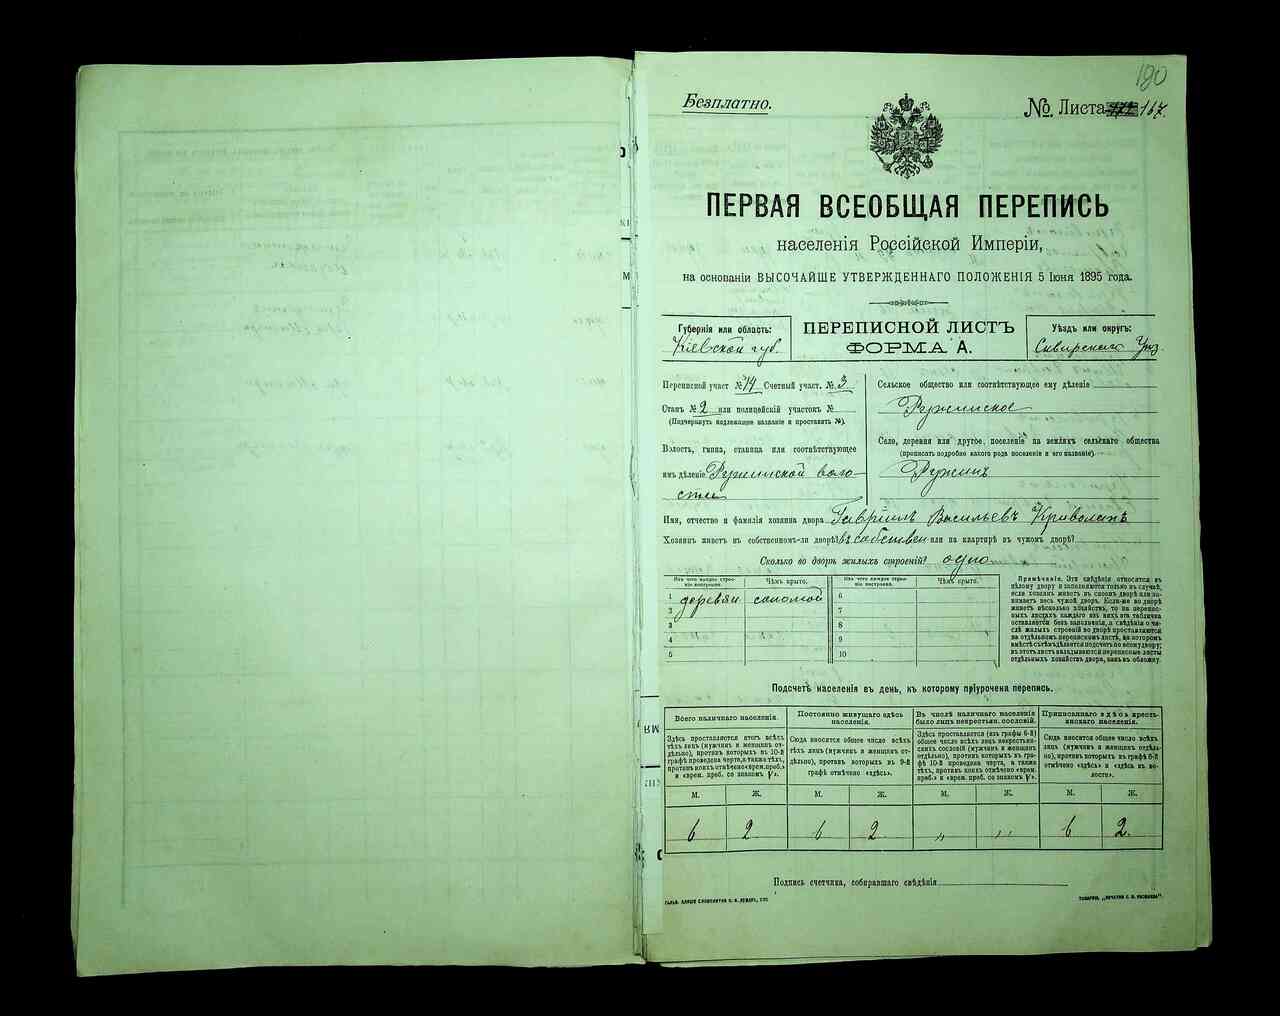 190
Безплатно.
№. Листа 167.
ПЕРВАЯ ВСЕОБЩАЯ ПЕРЕПИСЬ
населенія Россійской Имперіи,
на основаніи ВЫСОЧАЙШЕ УТВЕРЖДЕННАГО ПОЛОЖЕНІЯ 5 Іюня 1895 года.
Губернія или область:
Кіевской губ.
ПЕРЕПИСНОЙ ЛИСТЪ
ФОРМА А.
Уѣздъ или округъ:
Сквирскаго Уѣз.
Переписной участ №14 Счетный участ. №3
Станъ №2 или полицейскій участокъ №
(Подчеркнуть надлежащее названіе и проставить №).
Волость, гмина, станица или соотвѣтствующее
имъ дѣленіе Ружинской воло-
сти
Сельское общество или соотвѣтствующее ему дѣленіе
Ружинское
Село, деревня или другое, поселеніе на земляхъ сельскаго общества
(прописать подробно какого рода поселеніе и его названіе).
Ружинъ
Имя, отчество и фамилія хозяина двора Гавріилъ Васильевъ Криволапъ
Хозяинъ живетъ въ собственномъ-ли дворѣ? въ собствен или на квартирѣ въ чужомъ дворѣ?
Сколько во дворѣ жилыхъ строеній? одно
Изъ чего каждое строе-
ніе построено.
Чѣмъ крыто.
Изъ чего каждое строе-
ніе построено.
Чѣмъ крыто.
1 деревян соломой 6
2 7
3 8
4 9
5 10
Примѣчаніе. Эти свѣдѣнія относятся къ
цѣлому двору и заполняются только въ случаѣ,
если хозяинъ живетъ въ своемъ дворѣ или за-
нимаетъ весь чужой дворъ. Если-же во дворѣ
живетъ нѣсколько хозяйствъ, то на перепис-
ныхъ листахъ каждаго изъ нихъ эта табличка
оставляется безъ заполненія, а свѣдѣнія о чи-
слѣ жилыхъ строеній во дворѣ проставляются
на отдѣльномъ переписномъ листѣ, на которомъ
вмѣстѣ съ тѣмъ дѣлается подсчетъ по всему двору;
въ этотъ листъ вкладываются переписные листы
отдѣльныхъ хозяйствъ двора, какъ въ обложку.
Подсчетъ населенія въ день, къ которому пріурочена перепись.
Всего наличнаго населенія.
Постоянно живущаго здѣсь
населенія.
Въ числѣ наличнаго населенія
было лицъ некрестьян. сословій.
Приписаннаго здѣсь кресть-
янскаго населенія.
Здѣсь проставляется итогъ всѣхъ
тѣхъ лицъ (мужчинъ и женщинъ от-
дѣльно), противъ которыхъ въ 10-й
графѣ проведена черта, а также тѣхъ,
противъ коихъ отмѣчено «врем. преб.»
и «врем. преб. со знакомъ V».
Сюда вносится общее число всѣхъ
тѣхъ лицъ (мужчинъ и женщинъ от-
дѣльно), противъ которыхъ въ 9-й
графѣ отмѣчено «здѣсь».
Здѣсь проставляется (изъ графы 6-й)
общее число всѣхъ лицъ некрестьян-
скихъ сословій (мужчинъ и женщинъ
отдѣльно), противъ которыхъ въ гра-
фѣ 10-й проведена черта, а также
тѣхъ, противъ коихъ отмѣчено «врем.
преб.» и «врем. преб. со знакомъ V».
Сюда вносится общее число всѣхъ
лицъ (мужчинъ и женщинъ отдѣль-
но), противъ которыхъ въ графѣ 8-й
отмѣчено «здѣсь» и «здѣсь въ во-
лости».
М. Ж. М. Ж. М. Ж. М. Ж.
6 2 6 2 „ „ 6 2.
Подпись счетчика, собиравшаго свѣдѣнія